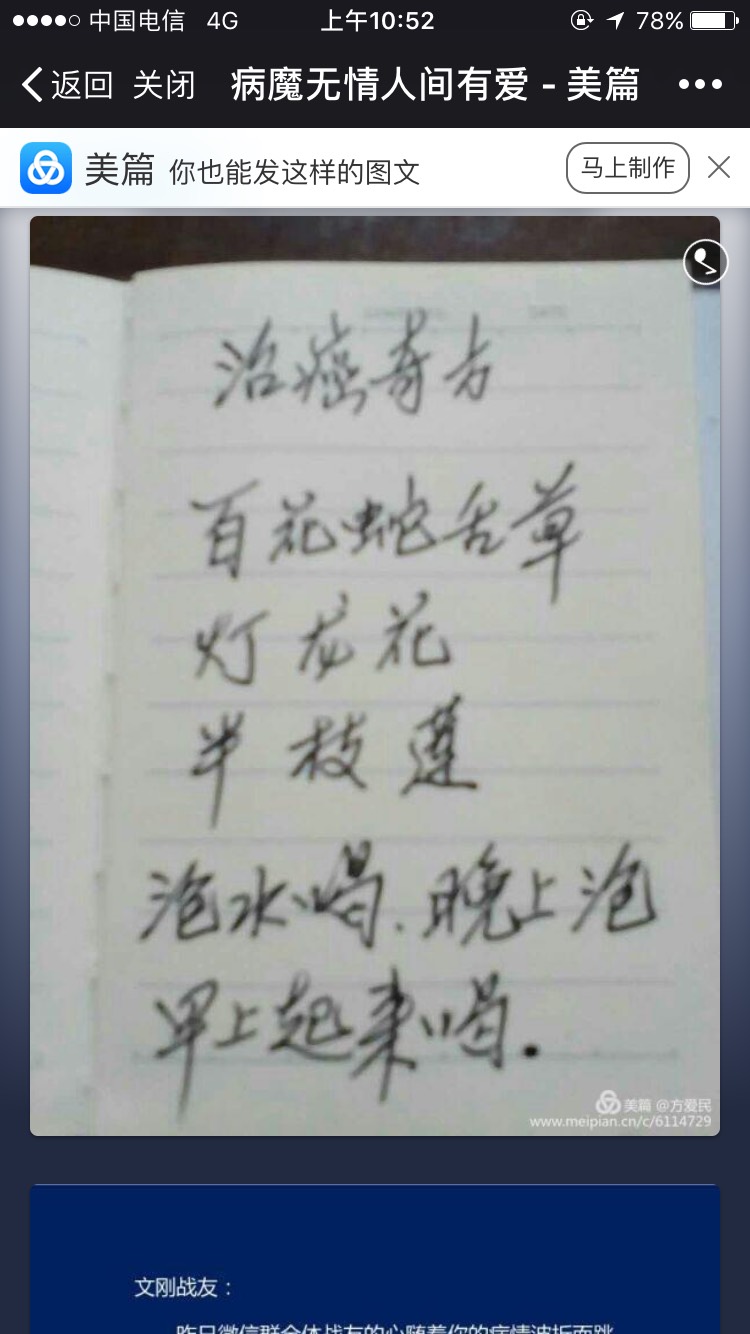 中国电信 4G 上午10:52 78%
返回 关闭 病魔无情人间有爱 - 美篇
美篇 你也能发这样的图文 马上制作
治癌奇方
百花蛇舌草
灯龙花
半枝莲
泡水喝.晚上泡
早上起来喝.
美篇 @方爱民
www.meipian.cn/c/6114729
文刚战友：
昨日微信群全体战友的心随着你的病情波折而跳